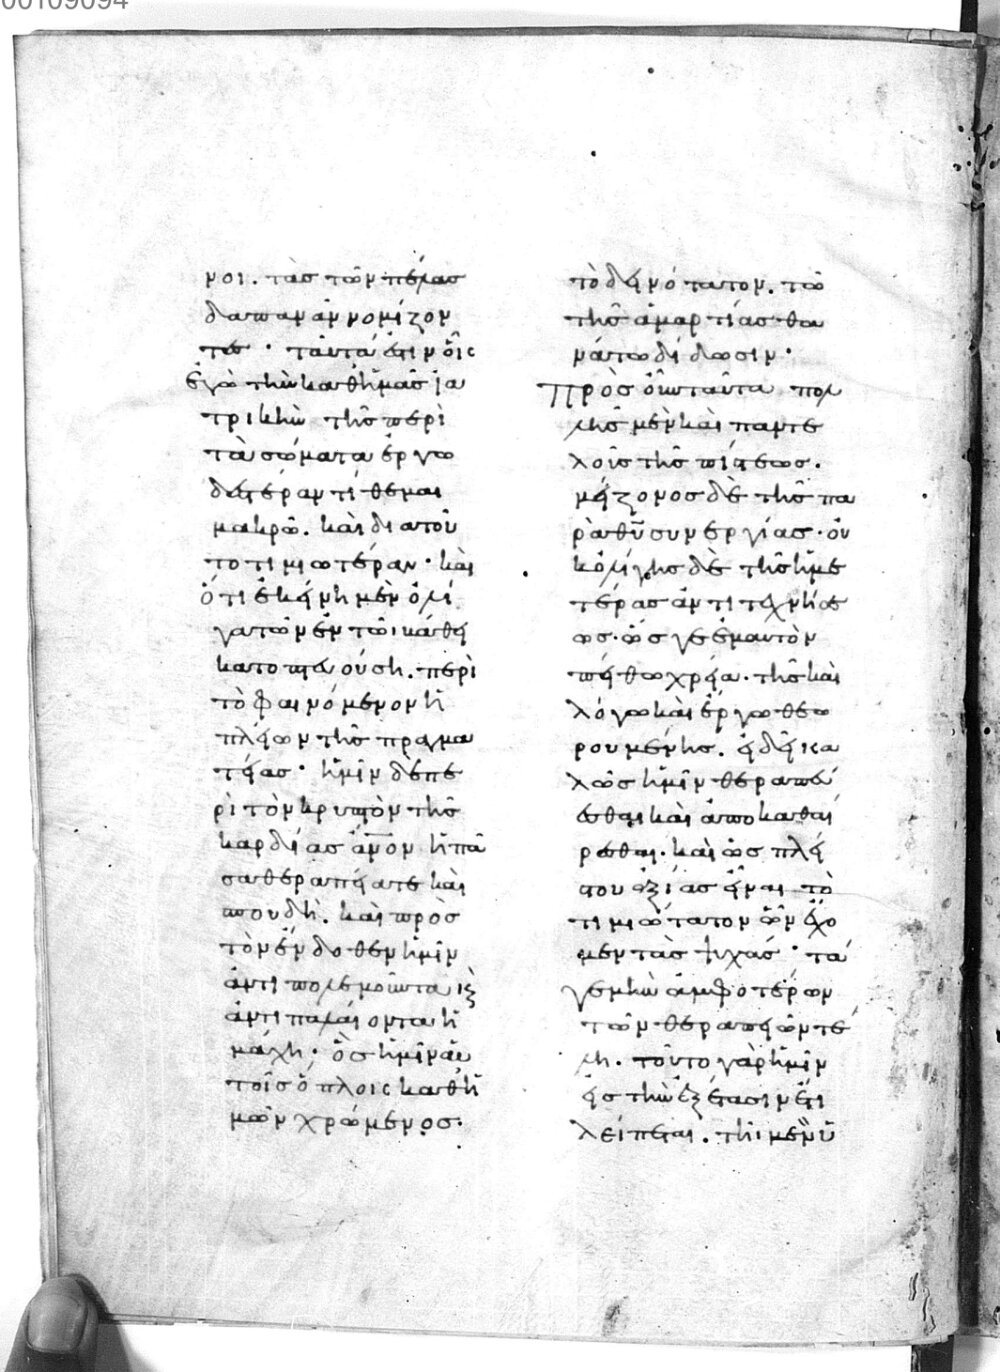 00109094
νοι. τὰς τῶν πέλας
δαπανᾶν νομίζον
τες · ταῦτά ἐστιν οἷς
ἐγὼ τὴν καθ ἡμᾶς ἰα
τρικὴν τῆς περὶ
τὰ σώματα ἐργω
δεστέραν τίθεμαι
μακρῶ. καὶ διατοῦ
το τιμιωτέραν · καὶ
ὅτι ἐκείνη μὲν ὀλί
γα τῶν ἐν τῶι βάθει
κατοπτευούση. περὶ
τὸ φαινόμενον ἡ
πλείων τῆς πραγμα
τείας · ἡμῖν δὲ πε
ρὶ τὸν κρυπτὸν τῆς
καρδίας ἄνον ἡ πᾶ
σα θεραπεία τε καὶ
σπουδή. καὶ πρὸς
τὸν ἔνδοθεν ἡμῖν
ἀντιπολεμοῦντα καὶ
ἀντιπαλαίοντα ἡ
μάχη · ὃς ἡμῖν αὐ
τοῖς ὅπλοις καθ ἡ
μῶν χρώμενος.
τὸ δεινότατον. τῶ
τῆς ἁμαρτίας θα
νάτω δίδωσιν ·
Πρὸς οὖν ταῦτα πολ
λῆς μὲν καὶ παντε
λοῦς τῆς πίστεως.
μείζονος δὲ τῆς πα
ρὰ θῦ συνεργίας · οὐ
κ ὀλίγης δὲ τῆς ἡμε
τέρας ἀντιτεχνήσε
ως · ὥς γε ἐμαυτὸν
πείθω χρεία · τῆς καὶ
λόγω καὶ ἔργω θεω
ρουμένης. εἰ δεῖ κα
λῶς ἡμῖν θεραπεύ
εσθαι καὶ ἀποκαθαί
ρεσθαι. καὶ ὡς πλεί
στου ἀξίας εἶναι τὸ
τιμιώτατον ὧν ἔχο
μεν τὰς ψυχάς · τά
γε μὴν ἀμφοτέρων
τῶν θεραπειῶν τέ
λη. τοῦτο γὰρ ἡμῖν
εἰς τὴν ἐξέτασιν ἔτι
λείπεται. τῆι μὲν ὑ